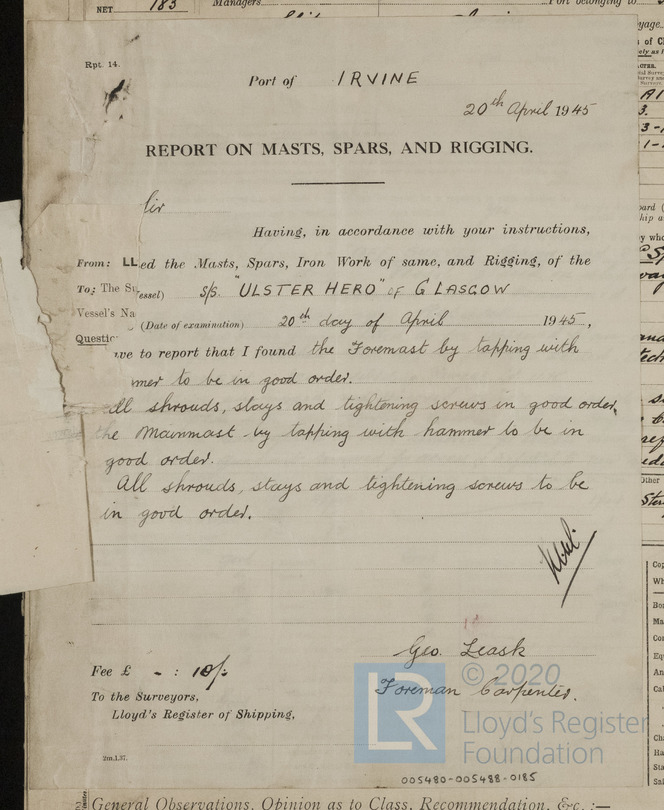 NET 183 Managers Port belonging to
Rpt. 14.
Port of IRVINE
20th April 1945
REPORT ON MASTS, SPARS, AND RIGGING.
Sir
Having, in accordance with your instructions,
From: LL ed the Masts, Spars, Iron Work of same, and Rigging, of the
To: The Su essel) s/s. "ULSTER HERO" of GLASGOW
Vessel's Na (Date of examination) 20th day of April 1945,
Questic ave to report that I found the Foremast by tapping with
mer to be in good order.
All shrouds, stays and tightening screws in good order,
the Mainmast by tapping with hammer to be in
good order.
All shrouds, stays and tightening screws to be
in good order.
Geo. Leask
Foreman Carpenter.
Fee £ - : 10/-
To the Surveyors,
Lloyd's Register of Shipping,
2m.1.37.
LR © 2020
Lloyd's Register
Foundation
005480-005488-0185
General Observations, Opinion as to Class, Recommendation, &c. :—